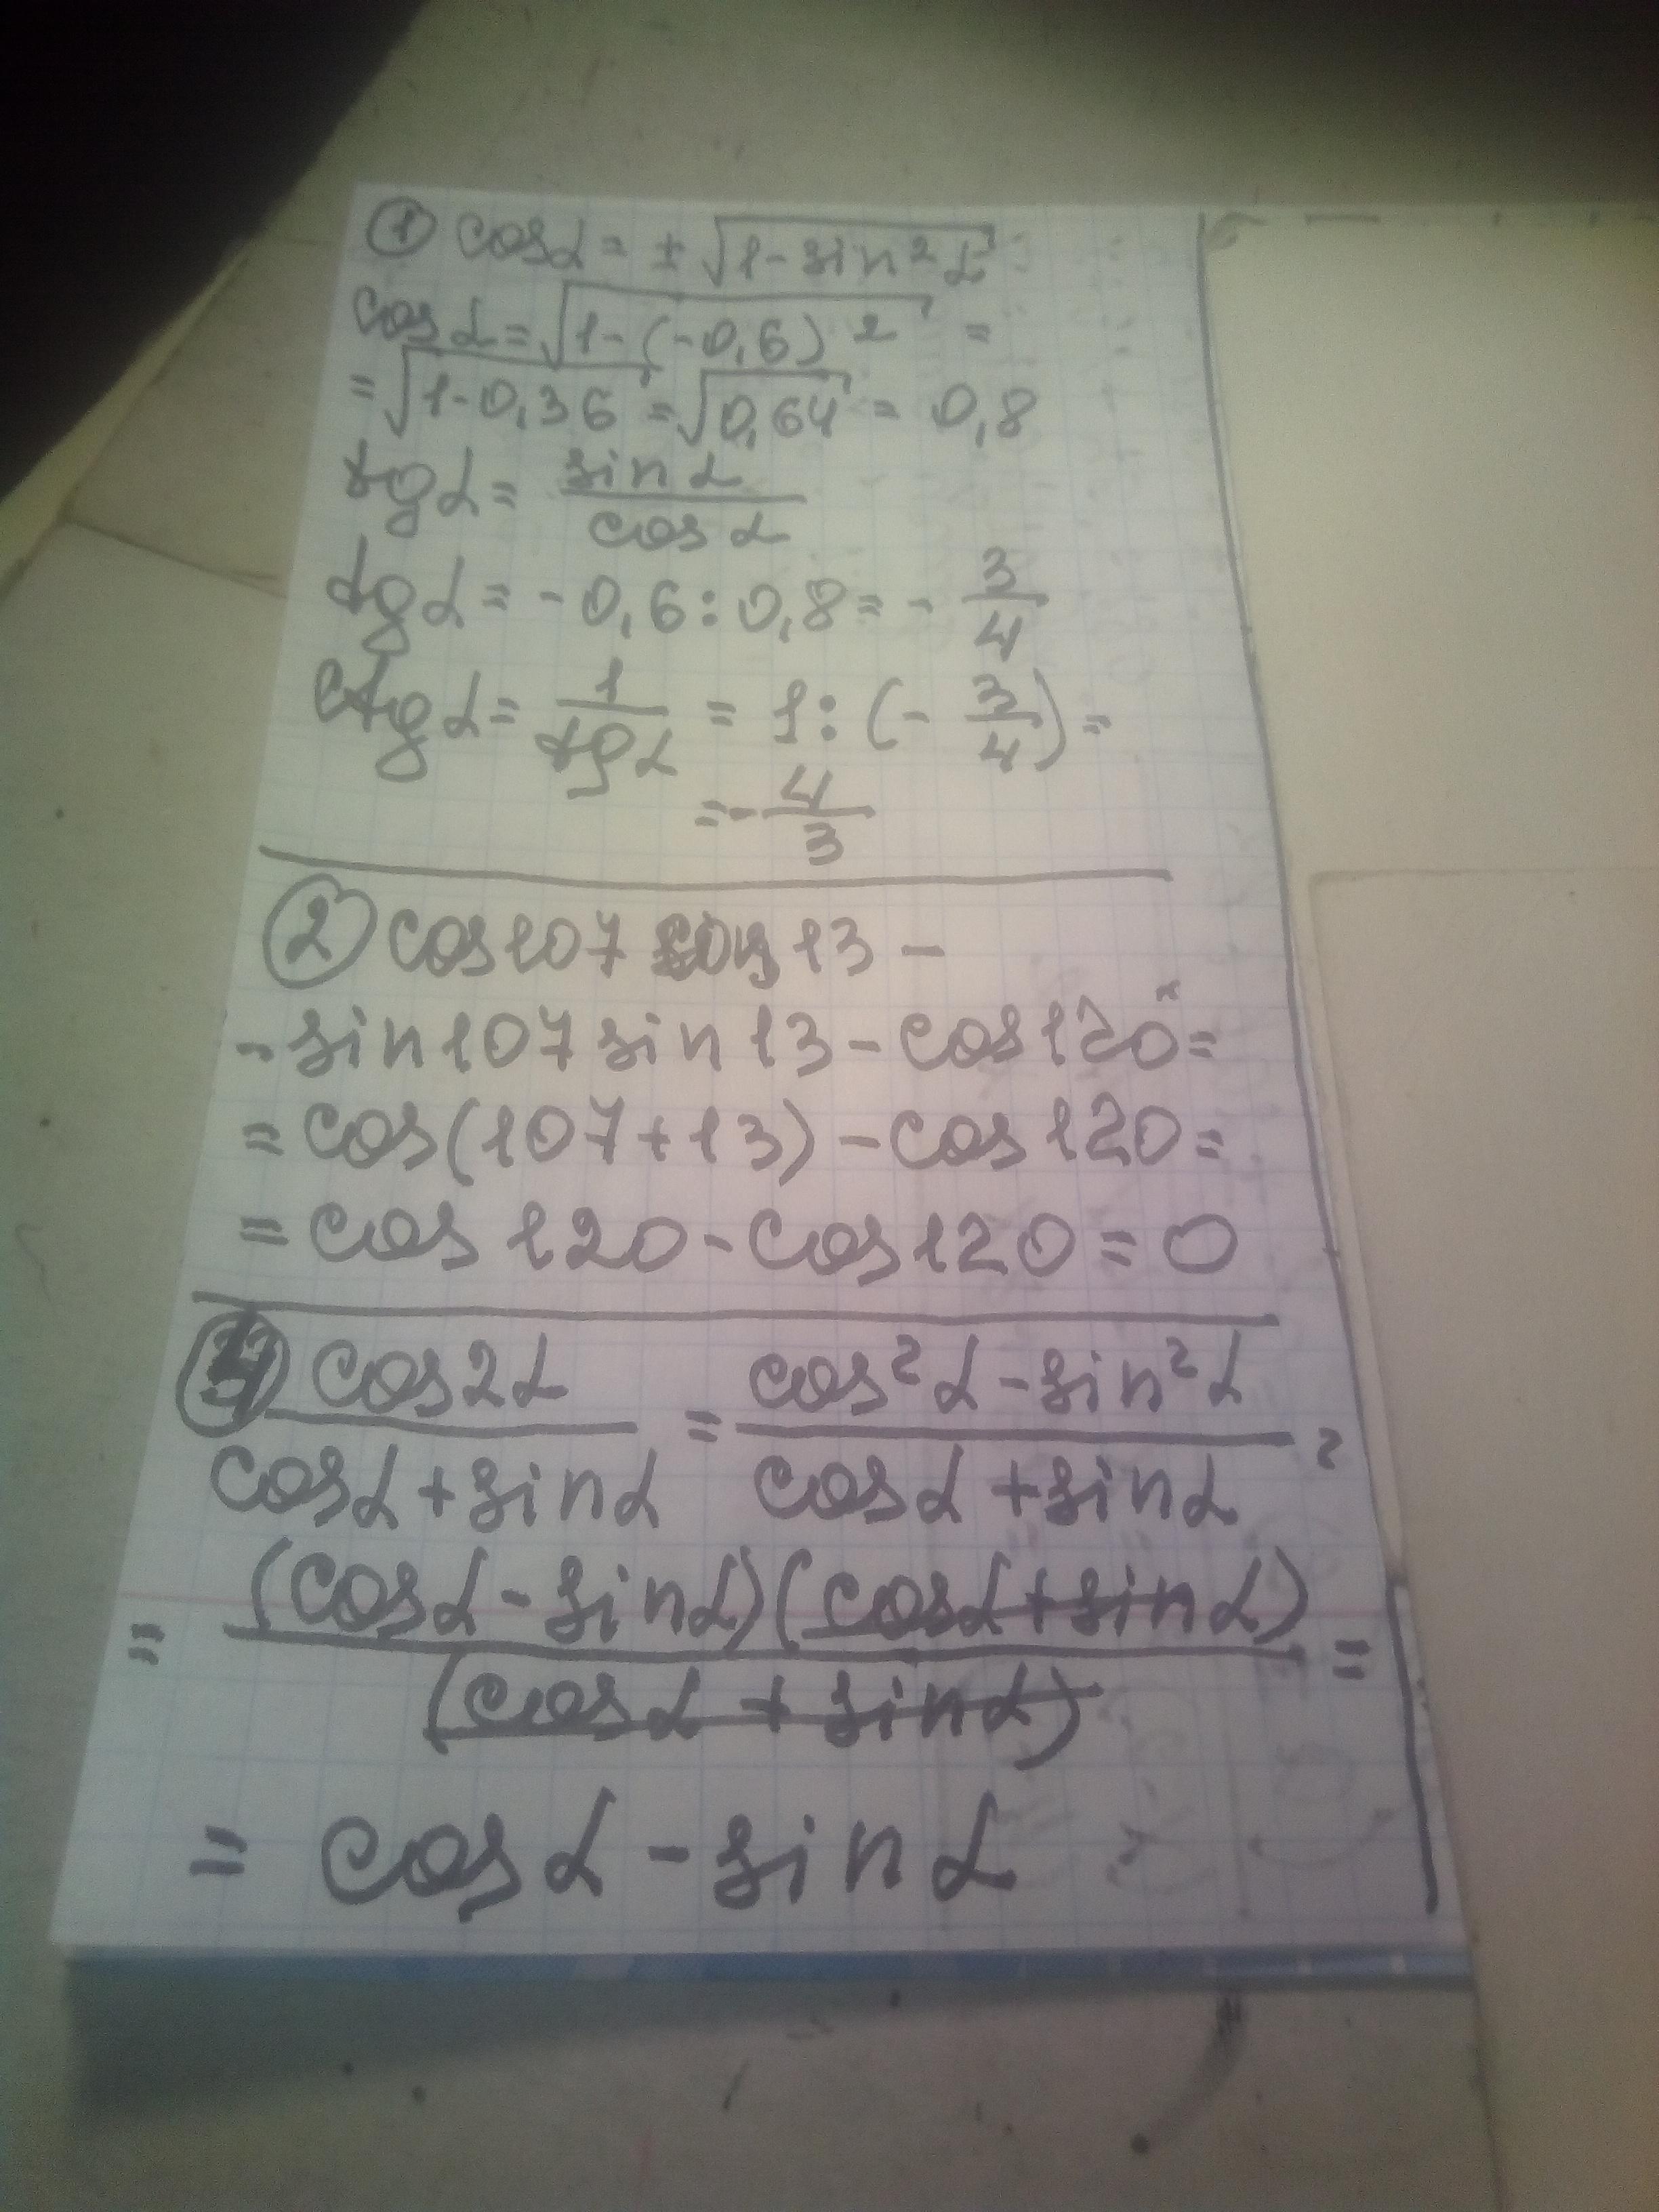 ① cosα = ±√(1-sin²α)
cosα = √(1-(-0,6)²) =
= √(1-0,36) = √0,64 = 0,8
tgα = sinα/cosα
tgα = -0,6:0,8 = -3/4
ctgα = 1/tgα = 1:(-3/4) =
= -4/3
② cos107 cos13 -
- sin107 sin13 - cos120 =
= cos(107+13) - cos120 =
= cos120 - cos120 = 0
cos2α/(cosα+sinα) = (cos²α-sin²α)/(cosα+sinα) =
= (cosα-sinα)(cosα+sinα)/(cosα+sinα) =
= cosα - sinα